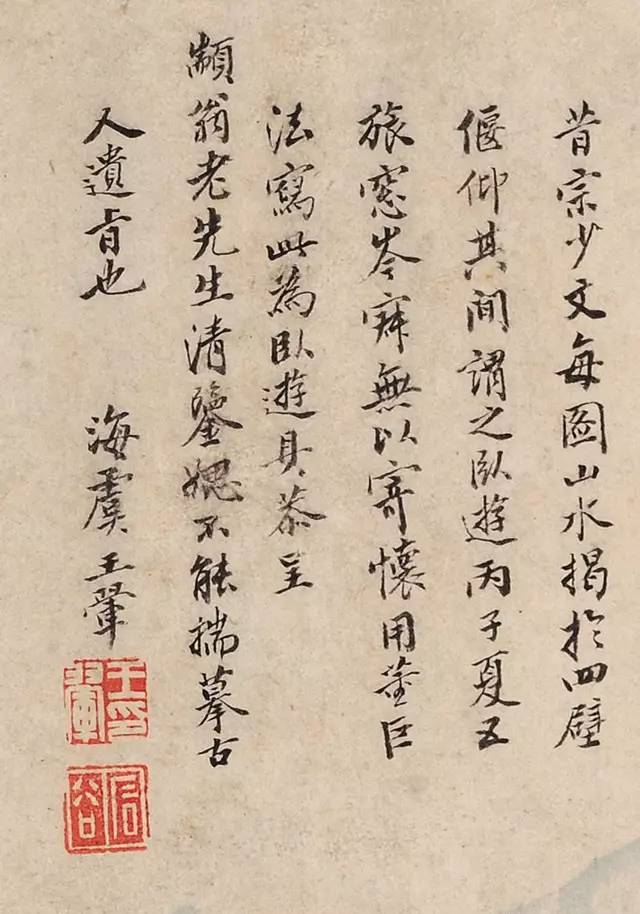 昔宗少文每圖山水揭於四壁
偃仰其間謂之臥遊丙子夏五
旅窓岑寂無以寄懷用董巨
法寫此為臥遊具恭呈
顓翁老先生清鑒媿不能揣摹古
人遺旨也
海虞王翬
王翬之印